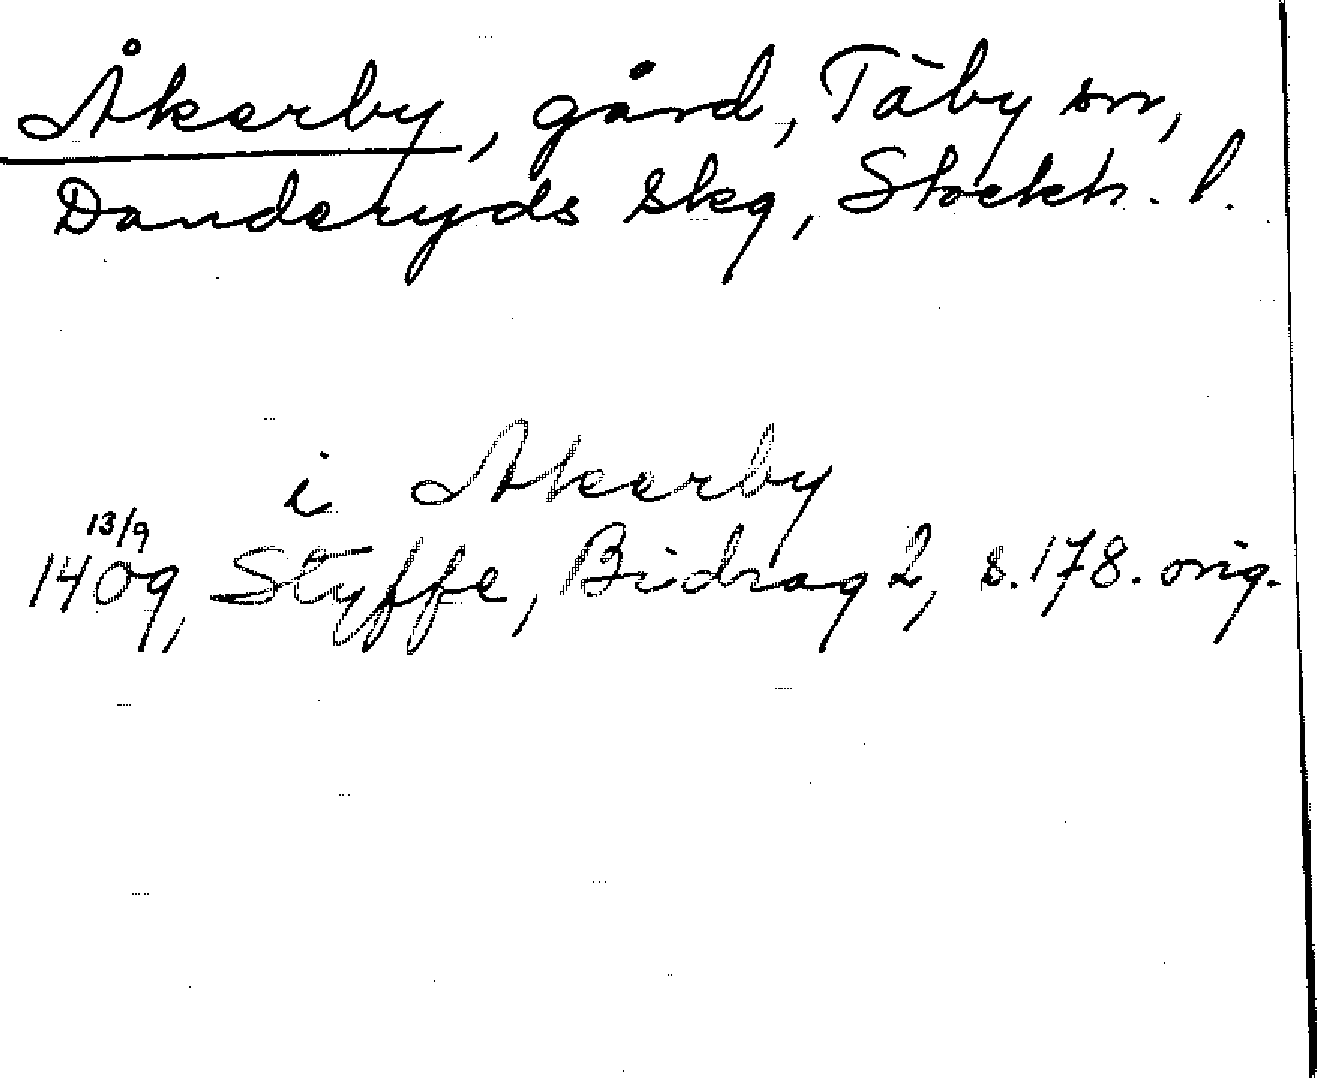 Åkerby, gård, Täby sn,
Danderyds skg, Stockh. l.
i Akerby
13/9
1409, Styffe, Bidrag 2, s. 178. orig.